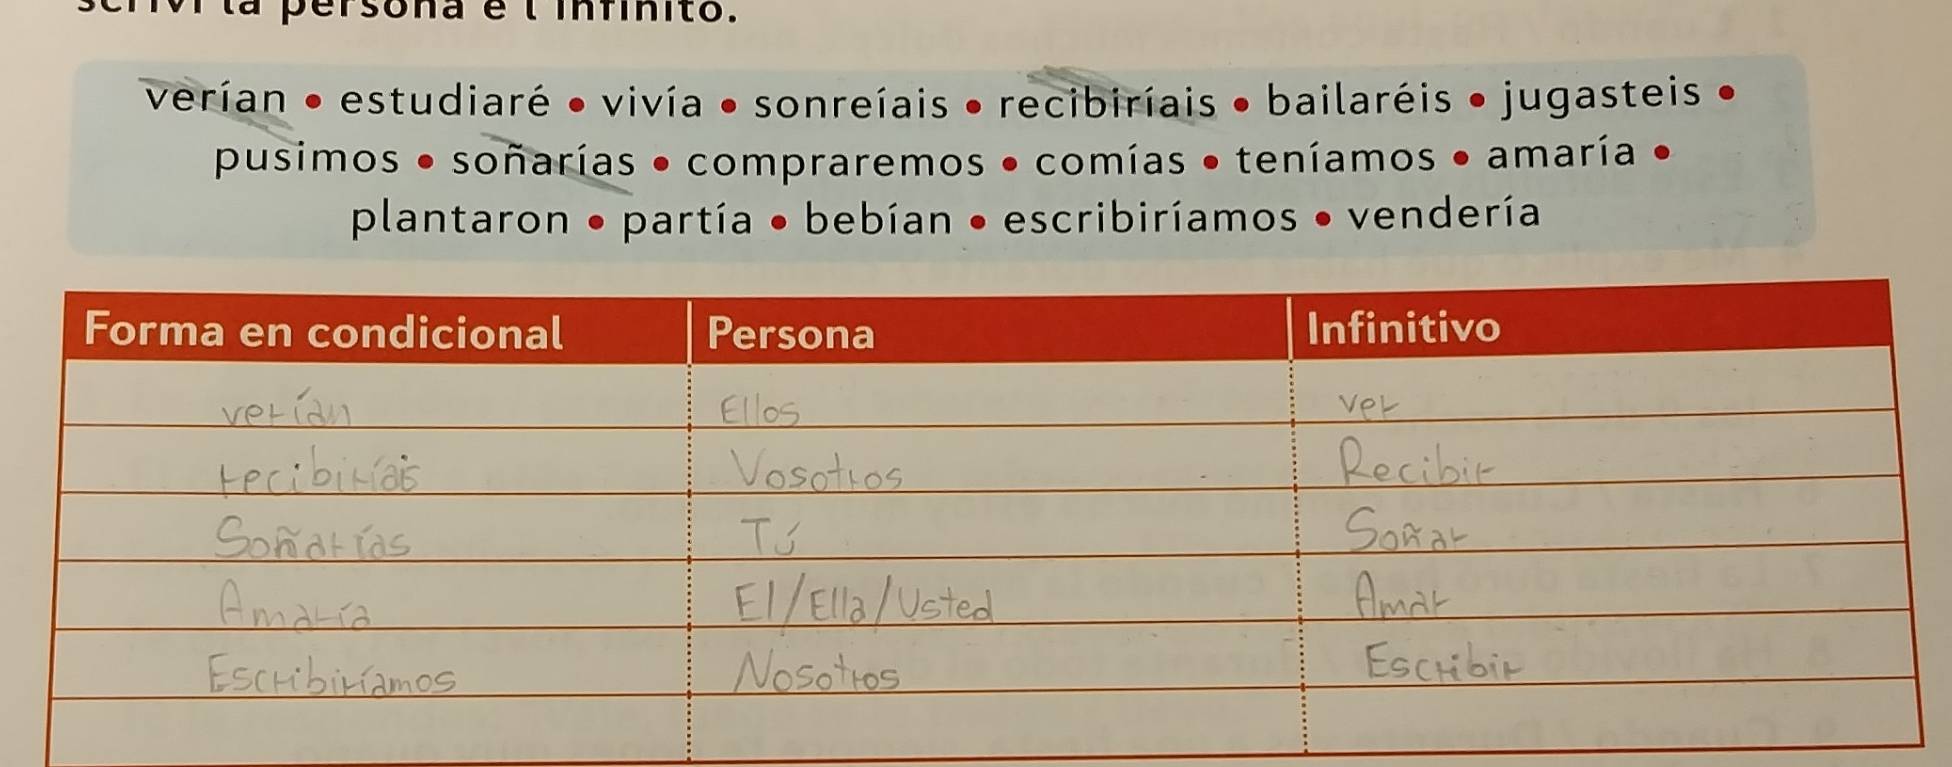 scrivi la persona e l'infinito.
verían • estudiaré • vivía • sonreíais • recibiríais • bailaréis • jugasteis •
pusimos • soñarías • compraremos • comías • teníamos • amaría •
plantaron • partía • bebían • escribiríamos • vendería
Forma en condicional Persona Infinitivo
verían Ellos ver
recibiríais Vosotros Recibir
Soñarías Tú Soñar
Amaría El/Ella/Usted Amar
Escribiríamos Nosotros Escribir